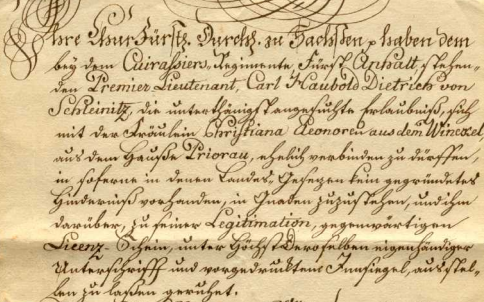 Ihre Churfürstl. Durchl. zu Sachßen p haben dem
bey dem Cuirassier-Regimente Fürst Anhalt, stehen-
den Premier Lieutenant, Carl Haubold Dietrich von
Schleinitz, die unterthänigst angesuchte Erlaubniß, sich
mit der Fräulein Christiana Eleonoren aus dem Winckel
aus dem Hauße Priorau, ehelich verbinden zu dürffen,
in soferne in denen Landes-Gesezen kein gegründetes
Hinderniß vorhanden, in Gnaden zuzustehen, und ihm
darüber, zu seiner Legitimation, gegenwärtigen
Licenz-Schein, unter Höchst Deroselben eigenhändiger
Unterschrifft und vorgedruckten Innsiegel, ausstel-
len zu laßen geruhet.